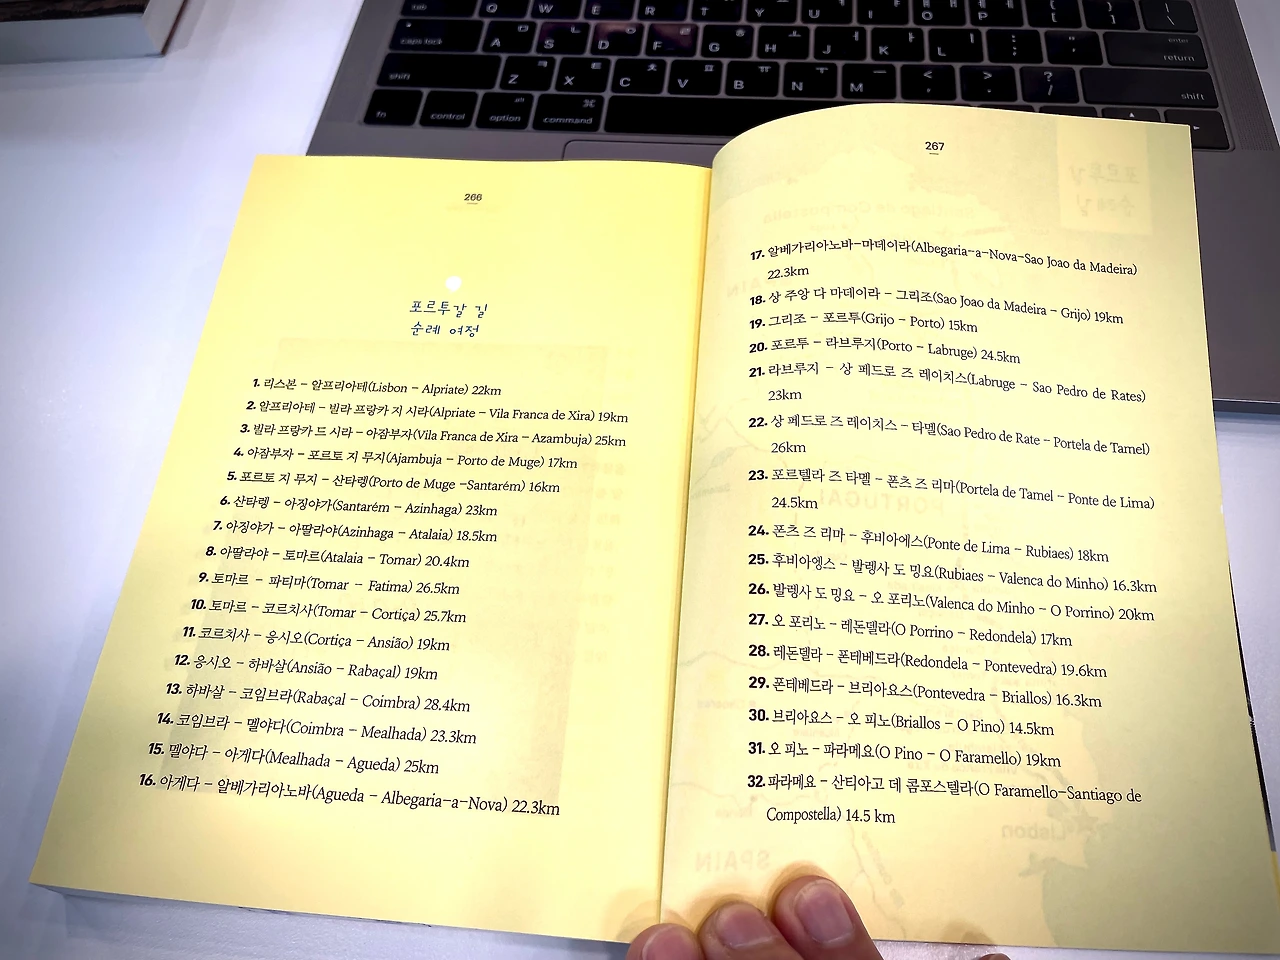 266
포르투갈 길
순례 여정
1. 리스본 - 알프리아테(Lisbon - Alpriate) 22km
2. 알프리아테 - 빌라 프랑카 지 시라(Alpriate - Vila Franca de Xira) 19km
3. 빌라 프랑카 드 시라 - 아잠부자(Vila Franca de Xira - Azambuja) 25km
4. 아잠부자 - 포르토 지 무지(Ajambuja - Porto de Muge) 17km
5. 포르토 지 무지 - 산타렝(Porto de Muge -Santarém) 16km
6. 산타렝 - 아징야가(Santarém - Azinhaga) 23km
7. 아징야가 - 아딸라야(Azinhaga - Atalaia) 18.5km
8. 아딸라야 - 토마르(Atalaia - Tomar) 20.4km
9. 토마르 - 파티마(Tomar - Fatima) 26.5km
10. 토마르 - 코르치사(Tomar - Cortiça) 25.7km
11. 코르치사 - 응시오(Cortiça - Ansião) 19km
12. 응시오 - 하바살(Ansião - Rabaçal) 19km
13. 하바살 - 코임브라(Rabaçal - Coimbra) 28.4km
14. 코임브라 - 멜야다(Coimbra - Mealhada) 23.3km
15. 멜야다 - 아게다(Mealhada - Agueda) 25km
16. 아게다 - 알베가리아노바(Agueda - Albegaria-a-Nova) 22.3km
267
17. 알베가리아노바-마데이라(Albegaria-a-Nova-Sao Joao da Madeira)
22.3km
18. 상 주앙 다 마데이라 - 그리조(Sao Joao da Madeira - Grijo) 19km
19. 그리조 - 포르투(Grijo - Porto) 15km
20. 포르투 - 라브루지(Porto - Labruge) 24.5km
21. 라브루지 - 상 페드로 즈 레이치스(Labruge - Sao Pedro de Rates)
23km
22. 상 페드로 즈 레이치스 - 타멜(Sao Pedro de Rate - Portela de Tamel)
26km
23. 포르텔라 즈 타멜 - 폰츠 즈 리마(Portela de Tamel - Ponte de Lima)
24.5km
24. 폰츠 즈 리마 - 후비아에스(Ponte de Lima - Rubiaes) 18km
25. 후비아엥스 - 발렝사 도 밍요(Rubiaes - Valenca do Minho) 16.3km
26. 발렝사 도 밍요 - 오 포리노(Valenca do Minho - O Porrino) 20km
27. 오 포리노 - 레돈델라(O Porrino - Redondela) 17km
28. 레돈델라 - 폰테베드라(Redondela - Pontevedra) 19.6km
29. 폰테베드라 - 브리아요스(Pontevedra - Briallos) 16.3km
30. 브리아요스 - 오 피노(Briallos - O Pino) 14.5km
31. 오 피노 - 파라메요(O Pino - O Faramello) 19km
32. 파라메요 - 산티아고 데 콤포스텔라(O Faramello-Santiago de
Compostella) 14.5 km